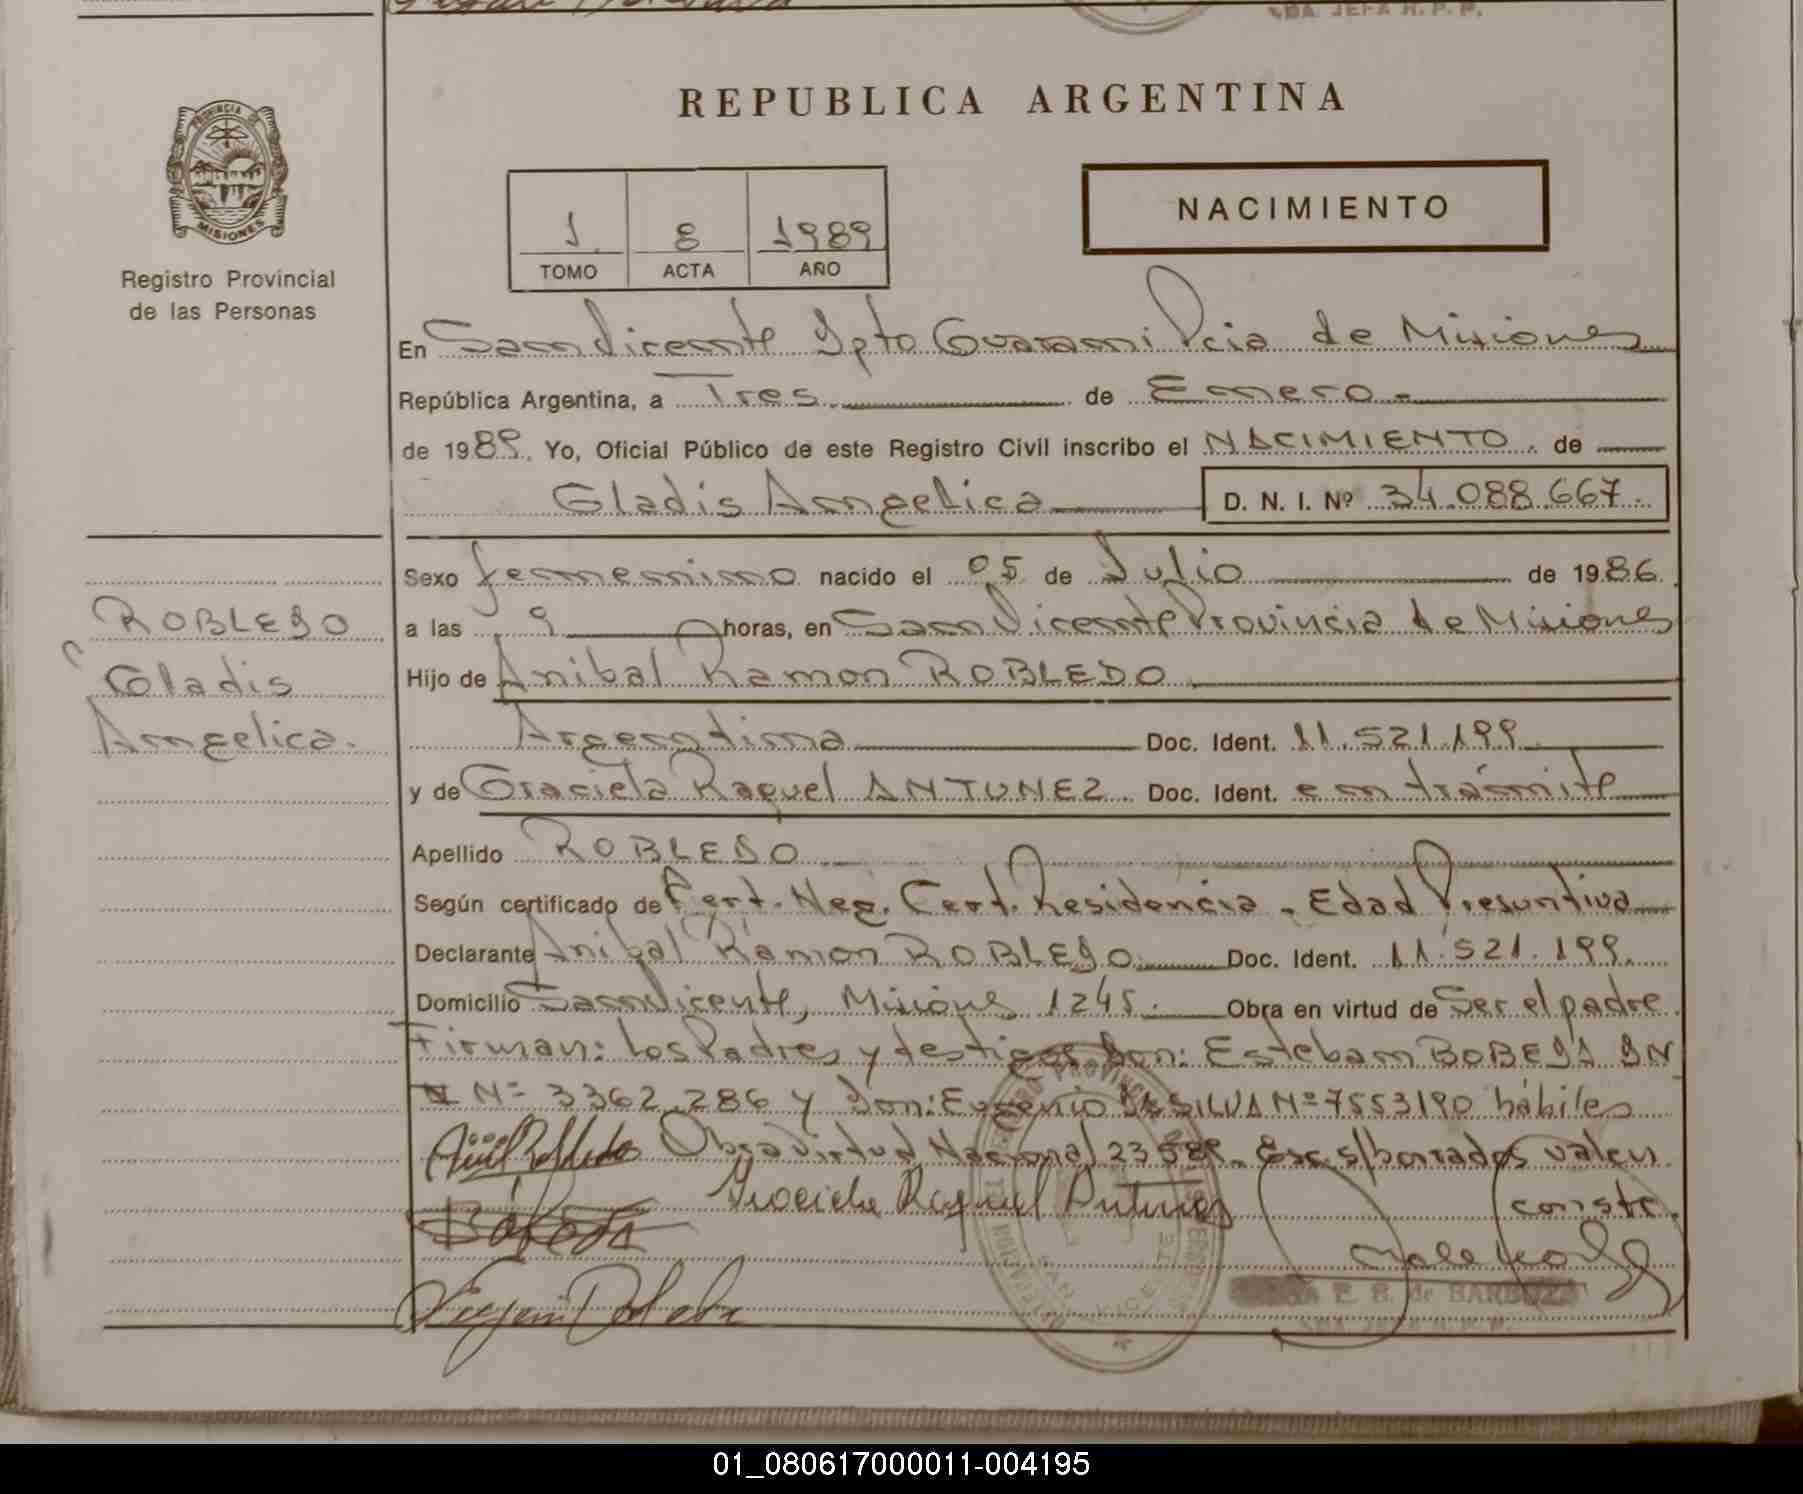 SDA. JEFA R. P. P.
PROVINCIA DE
MISIONES
Registro Provincial
de las Personas
REPUBLICA ARGENTINA
NACIMIENTO
1 8 1989
TOMO ACTA AÑO
En San Vicente Dpto Guarani Pcia de Misiones
República Argentina, a Tres de Enero
de 1989. Yo, Oficial Público de este Registro Civil inscribo el NACIMIENTO. de
Gladis Angelica D. N. I. Nº 34.088.667.
Sexo femenino nacido el 05 de Julio de 1986.
ROBLEDO
a las 9 horas, en San Vicente Provincia de Misiones
Gladis
Hijo de Anibal Ramon ROBLEDO
Angelica.
Argentina Doc. Ident. 11.521.199
y de Graciela Raquel ANTUNEZ. Doc. Ident. en trámite
Apellido ROBLEDO
Según certificado de Cert. Neg. Cert. Residencia - Edad Presuntiva
Declarante Anibal Ramon ROBLEDO Doc. Ident. 11.521.199.
Domicilio San Vicente, Misiones 1245. Obra en virtud de Ser el padre.
Firman: Los Padres y testigos Don: Esteban BOBEDA DN
N Nº 3362.286 y Don: Eugenio DASILVA Nº 7553190 hábiles
Obra Virtud Nacional 23 Esc. s/borrados valen
conste.
Graciela Raquel Antunez
SAN VICENTE
E. B. de BARBOZA
01_080617000011-004195